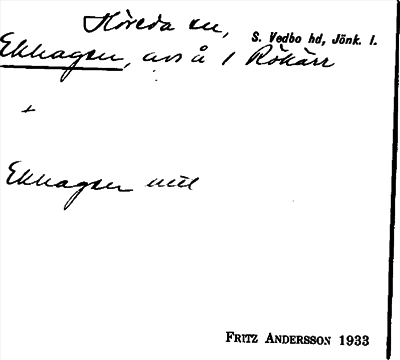 Höreda sn, S. Vedbo hd, Jönk. l.
Ekhagen, avs å 1 Rökärr
+
Ekhagen
FRITZ ANDERSSON 1933